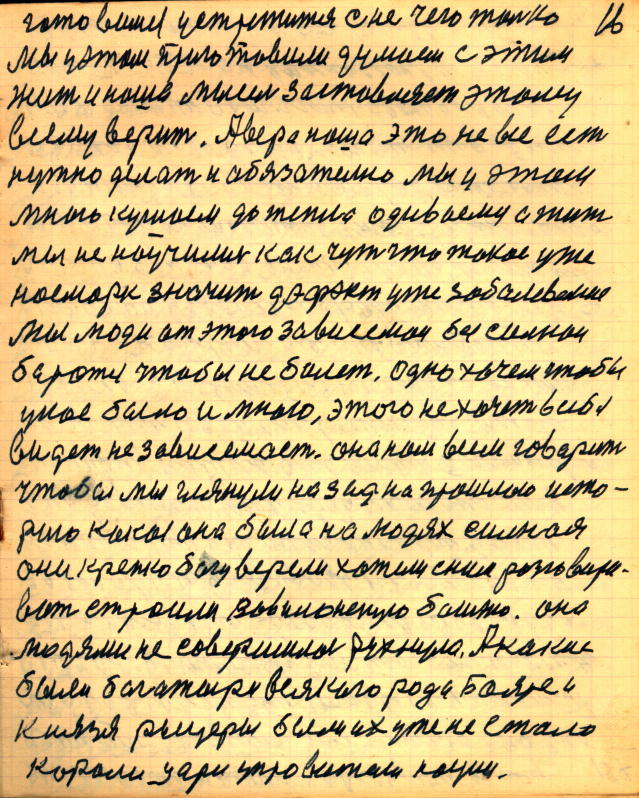 16
готовился устретится с не чего толко
мы у этом приготовили думаем с этим
жит и наша мысел заставляет этому
всему верит. А вера наша это не все ест
нужно делат и обязателно мы у этом
много кушаем до тепла одиваемся а жит
мы не научилис как чут что такое уже
насморк значит дефект уже заболевание
мы люди от этого зависемаи бессилнаи
бароты чтобы не болет. одно хочем чтобы
у нас было и много, этого не хочет в себя
видет не зависемаст. она нам всем говарит
чтобы мы глянули назад на прошлою исто-
рию какая она была на людях силная
они крепко богу верели хотели с ним разговари-
ват строили вавилонскую башню. она
людями не совершилас рухнула. А какие
были багатыри всякого рода Бояре и
князя рыцеры были их уже не стало
короли цари управители нации.